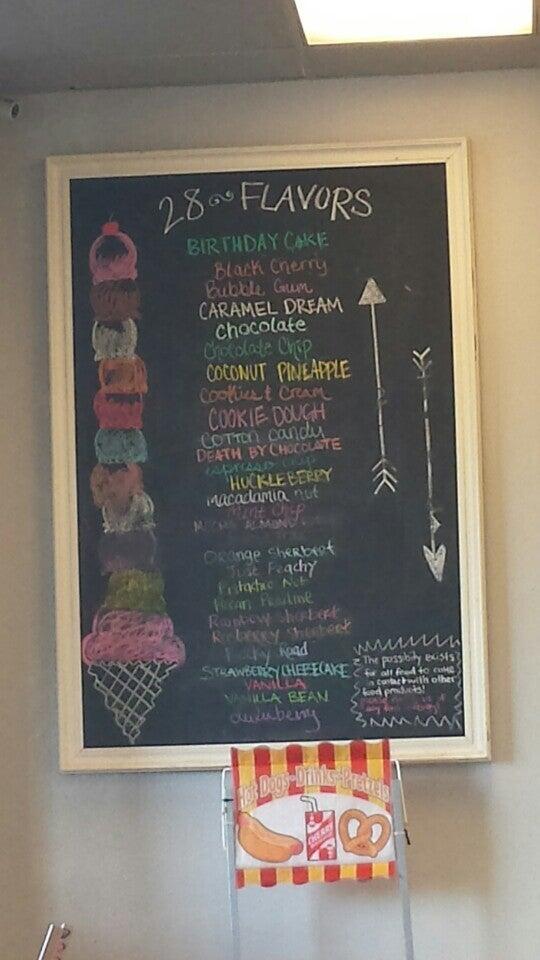 28 ~ FLAVORS
BIRTHDAY CAKE
Black Cherry
Bubble Gum
CARAMEL DREAM
Chocolate
Chocolate Chip
COCONUT PINEAPPLE
Cookies & Cream
COOKIE DOUGH
COTTON CANDY
DEATH BY CHOCOLATE
espresso chip
HUCKLEBERRY
macadamia nut
Mint Chip
MOCHA ALMOND
Orange Sherbert
Just Peachy
Pistachio Nut
Pecan Praline
Rainbow Sherbert
Raspberry Sherbert
Rocky Road
STRAWBERRY CHEESECAKE
VANILLA
VANILLA BEAN
The possibility exists
for all food to come
in contact with other
food products!
Hot Dogs • Drinks • Pretzels
CHERRY